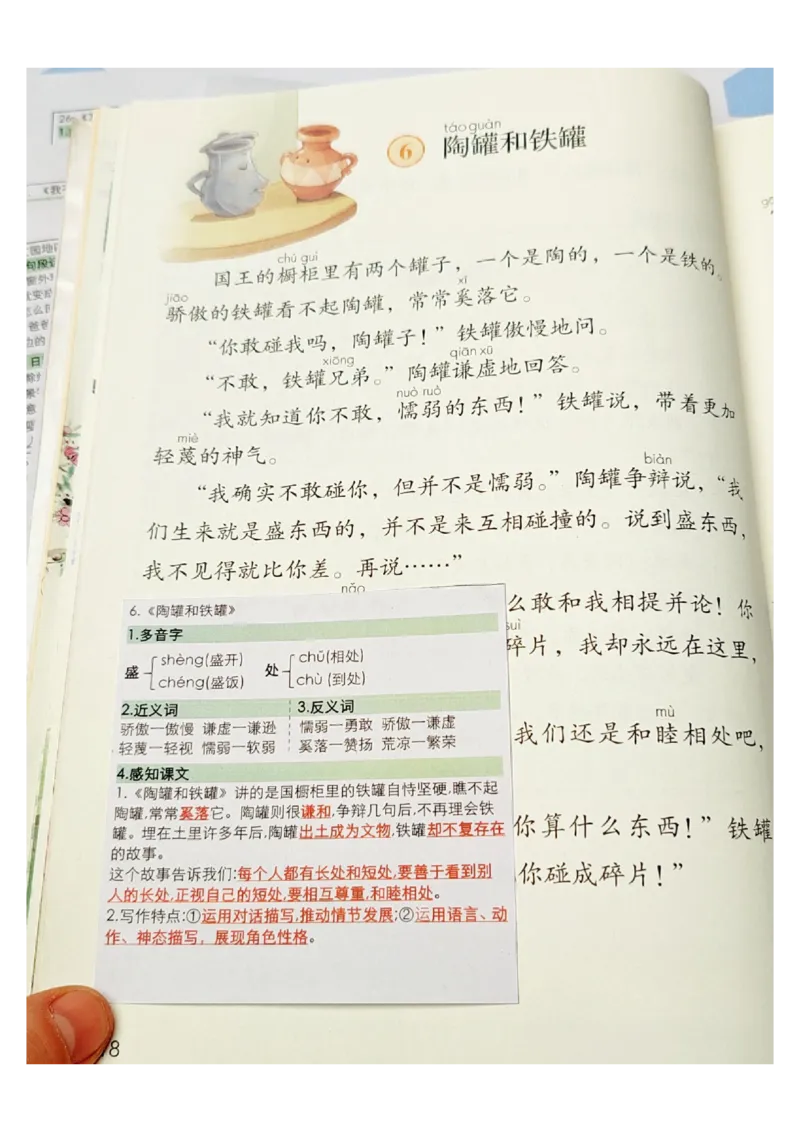 táo guàn
6 陶罐和铁罐
chú guì
国王的橱柜里有两个罐子，一个是陶的，一个是铁的。
jiāo xī
骄傲的铁罐看不起陶罐，常常奚落它。
“你敢碰我吗，陶罐子！”铁罐傲慢地问。
xiōng qiān xū
“不敢，铁罐兄弟。”陶罐谦虚地回答。
nuò ruò
“我就知道你不敢，懦弱的东西！”铁罐说，带着更加
miè
轻蔑的神气。
biàn
“我确实不敢碰你，但并不是懦弱。”陶罐争辩说，“我
们生来就是盛东西的，并不是来互相碰撞的。说到盛东西，
我不见得就比你差。再说……”
nǎo
么敢和我相提并论！你
suì
碎片，我却永远在这里，
mù
我们还是和睦相处吧，
你算什么东西！”铁罐
你碰成碎片！”
6.《陶罐和铁罐》
1.多音字
盛 shèng(盛开) chéng(盛饭) 处 chǔ(相处) chù(到处)
2.近义词 3.反义词
骄傲—傲慢 谦虚—谦逊 懦弱—勇敢 骄傲—谦虚
轻蔑—轻视 懦弱—软弱 奚落—赞扬 荒凉—繁荣
4.感知课文
1.《陶罐和铁罐》讲的是国橱柜里的铁罐自恃坚硬,瞧不起
陶罐,常常奚落它。陶罐则很谦和,争辩几句后,不再理会铁
罐。埋在土里许多年后,陶罐出土成为文物,铁罐却不复存在
的故事。
这个故事告诉我们:每个人都有长处和短处,要善于看到别
人的长处,正视自己的短处,要相互尊重,和睦相处。
2.写作特点:①运用对话描写,推动情节发展;②运用语言、动
作、神态描写，展现角色性格。
8